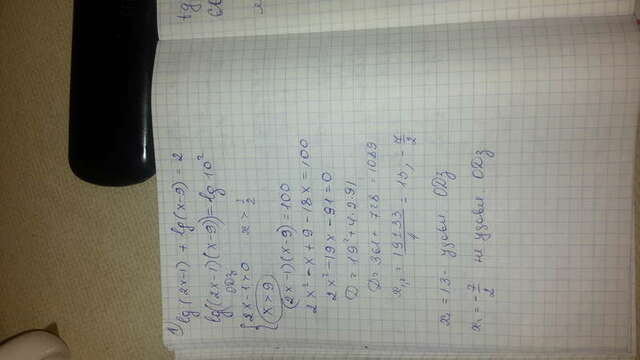 1) lg(2x-1) + lg(x-9) = 2
lg((2x-1)(x-9)) = lg 10²
ОДЗ
{2x-1>0 x > 1/2
{x>9
(2x-1)(x-9) = 100
2x² - x + 9 - 18x = 100
2x² - 19x - 91 = 0
D = 19² + 4·2·91
D = 361 + 728 = 1089
x₁,₂ = (19±33)/4 = 13, -7/2
x = 13 - удовл ОДЗ
x₁ = -7/2 не удовл ОДЗ